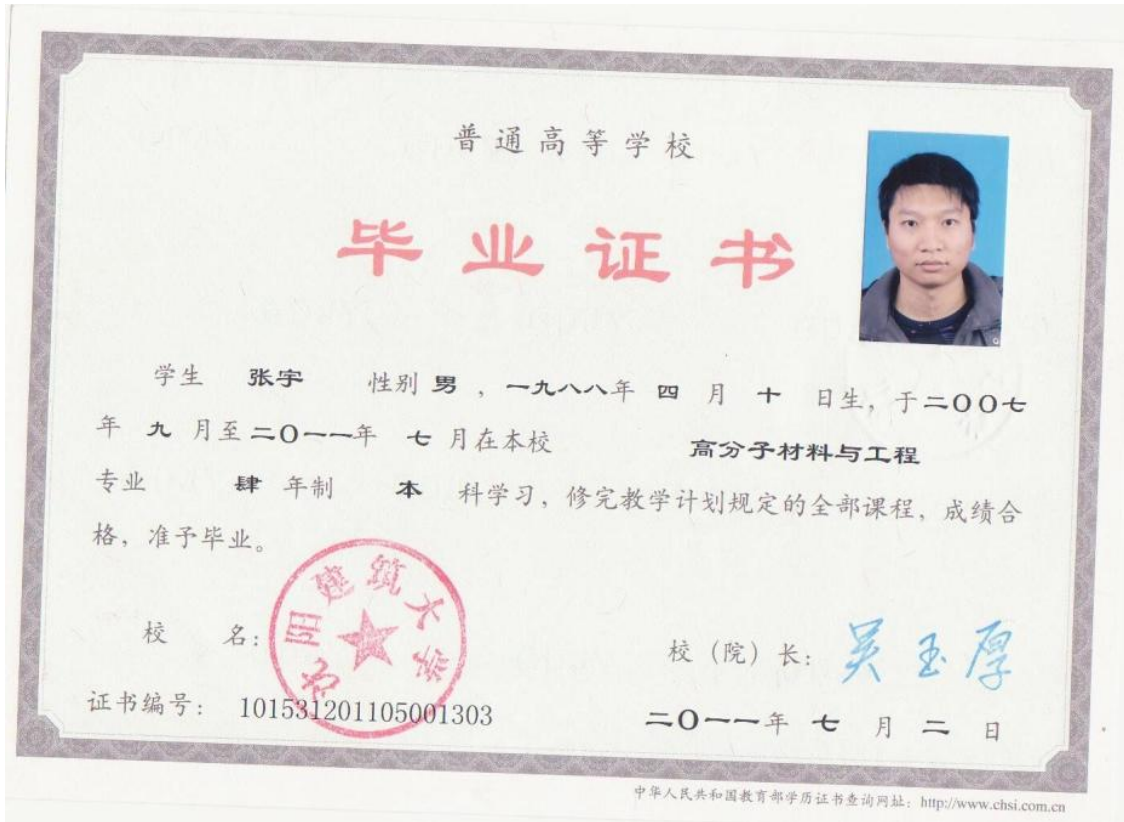 普通高等学校
毕业证书
学生 张宇 性别 男 ，一九八八年 四 月 十 日生，于二〇〇七
年 九 月至二〇一一年 七 月在本校 高分子材料与工程
专业 肆 年制 本 科学习，修完教学计划规定的全部课程，成绩合
格，准予毕业。
沈阳建筑大学
校 名：
校（院）长： 吴玉厚
证书编号： 101531201105001303
二〇一一年 七 月 二 日
中华人民共和国教育部学历证书查询网址：http://www.chsi.com.cn